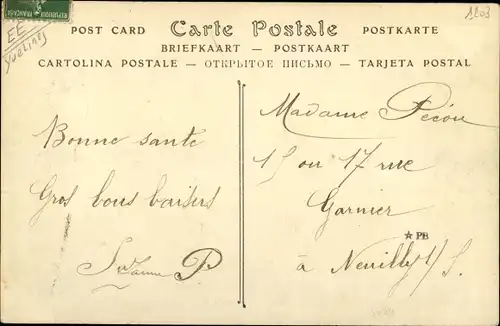 1203
EE
Yvelines
POST CARD Carte Postale POSTKARTE
BRIEFKAART — POSTKAART
CARTOLINA POSTALE — ОТКРЫТОЕ ПИСЬМО — TARJETA POSTAL
Bonne santé
Gros bons baisers
Suzanne P
Madame Pécou
15 ou 17 rue
Garnier
☆ PB
à Neuilly s/ S.